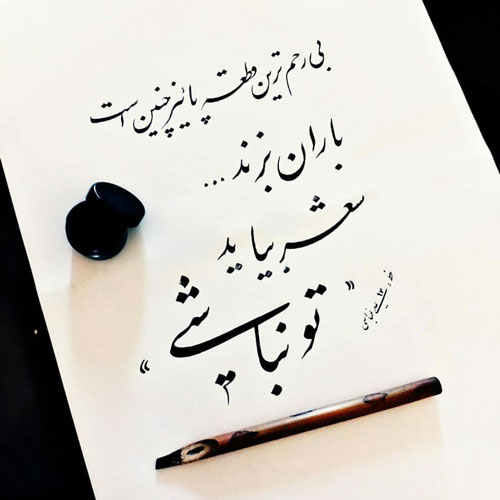 بی رحم ترین قطعه پائیز چنین است
باران بزند ...
شعر بیاید
" تو نباشی "